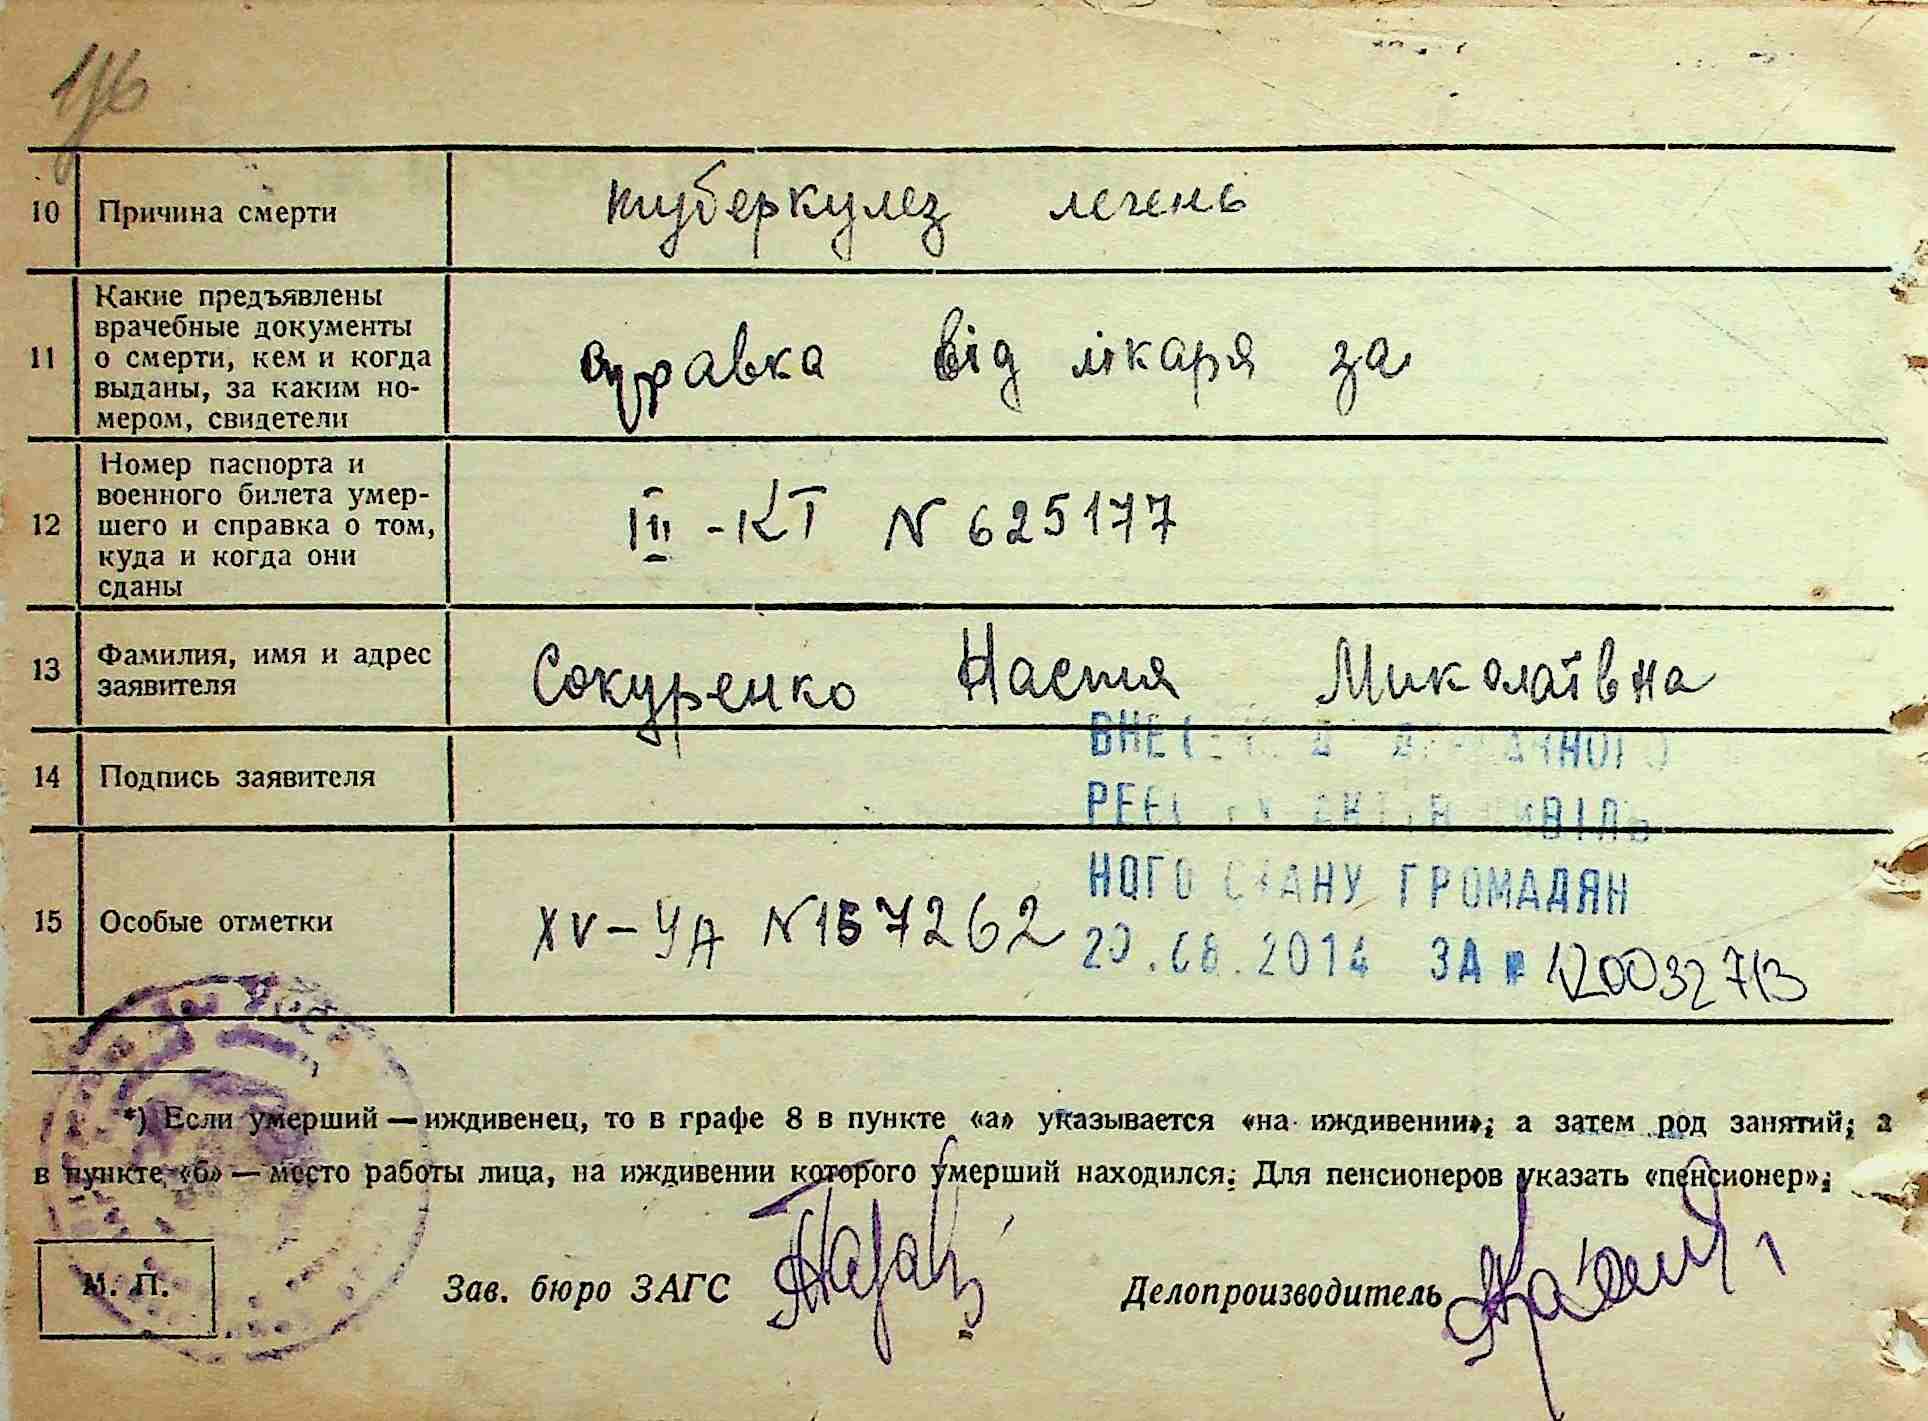 10 Причина смерти туберкулез легень
11 Какие предъявлены
врачебные документы
о смерти, кем и когда
выданы, за каким но-
мером, свидетели
справка від лікаря за
12 Номер паспорта и
военного билета умер-
шего и справка о том,
куда и когда они
сданы
III - КТ N 625177
13 Фамилия, имя и адрес
заявителя
Сокуренко Настя Миколаївна
14 Подпись заявителя
15 Особые отметки
XV - УА N 157262
НОГО СТАНУ ГРОМАДЯН
20.08.2014 ЗА № 120032713
*) Если умерший — иждивенец, то в графе 8 в пункте «а» указывается «на иждивении»; а затем род занятий; а
в пункте «б» — место работы лица, на иждивении которого умерший находился. Для пенсионеров указать «пенсионер»;
М. П.
Зав. бюро ЗАГС
Делопроизводитель